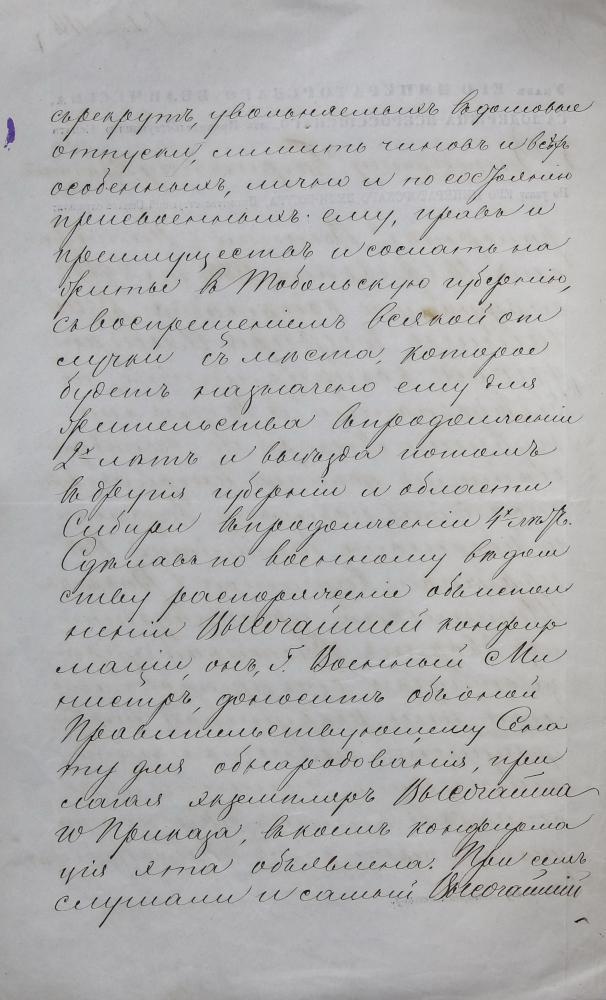 съ рекрутъ, увольняемыхъ въ домовые
отпуски, лишить чиновъ и всѣхъ
особенныхъ, лично и по состоянію
присвоенныхъ ему, правъ и
преимуществъ и сослать на
житье въ Тобольскую губернію,
съ воспрещеніемъ всякой от
лучки съ мѣста, которое
будетъ назначено ему для
жительства впродолженіи
2х лѣтъ и выѣзда потомъ
въ другія губерніи и области
Сибири впродолженіи 4х лѣтъ.
Сдѣлавъ по военному вѣдом
ству распоряженіе объ испол
неніи Высочайшей конфир
маціи, онъ, Г. Военный Ми
нистръ, доноситъ объ оной
Правительствующему Сена
ту для обнародованія, при
лагая экземпляръ Высочайша
го Приказа, въ коемъ конфирма
ція эта объявлена. При семъ
слушали и самый Высочайшій